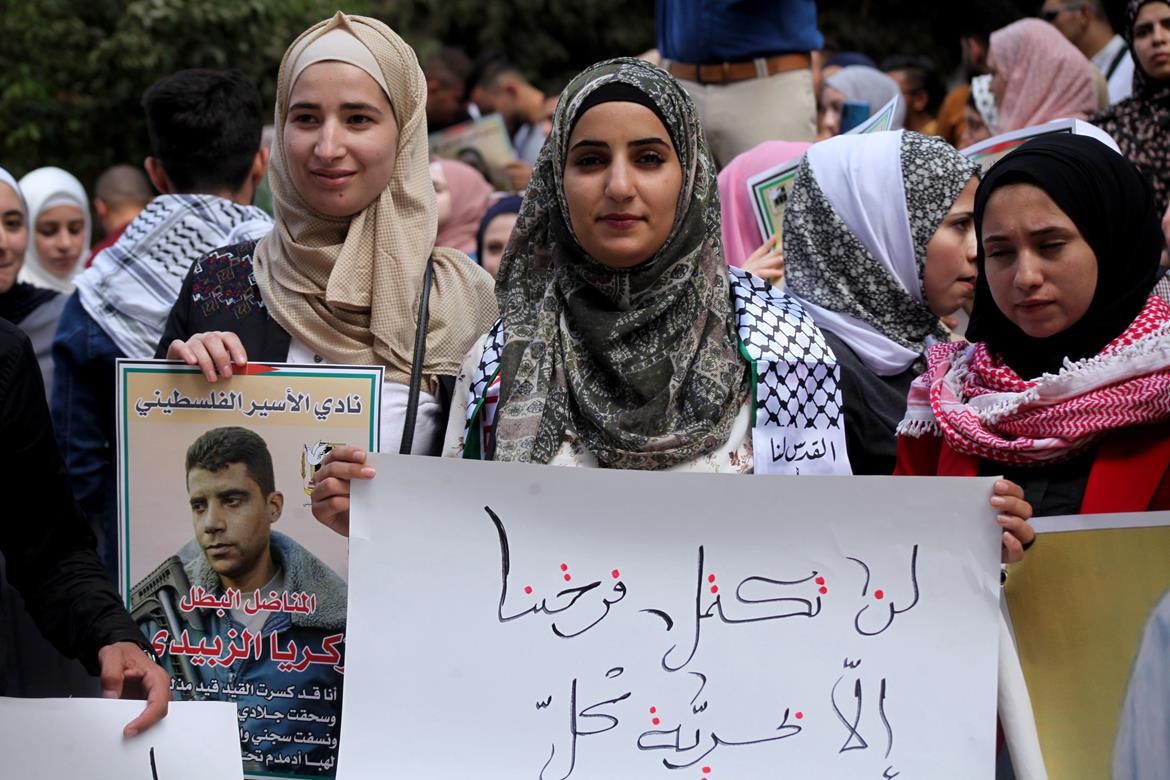 نادي الأسير الفلسطيني
المناضل البطل
زكريا الزبيدي
أنا قد كسرت القيد قيد
وسحقت جلادي
ونسفت سجني
لهبا أدمدم
القدس لنا
لن تكتمل فرحتنا
إلّا بحريّة كلّ